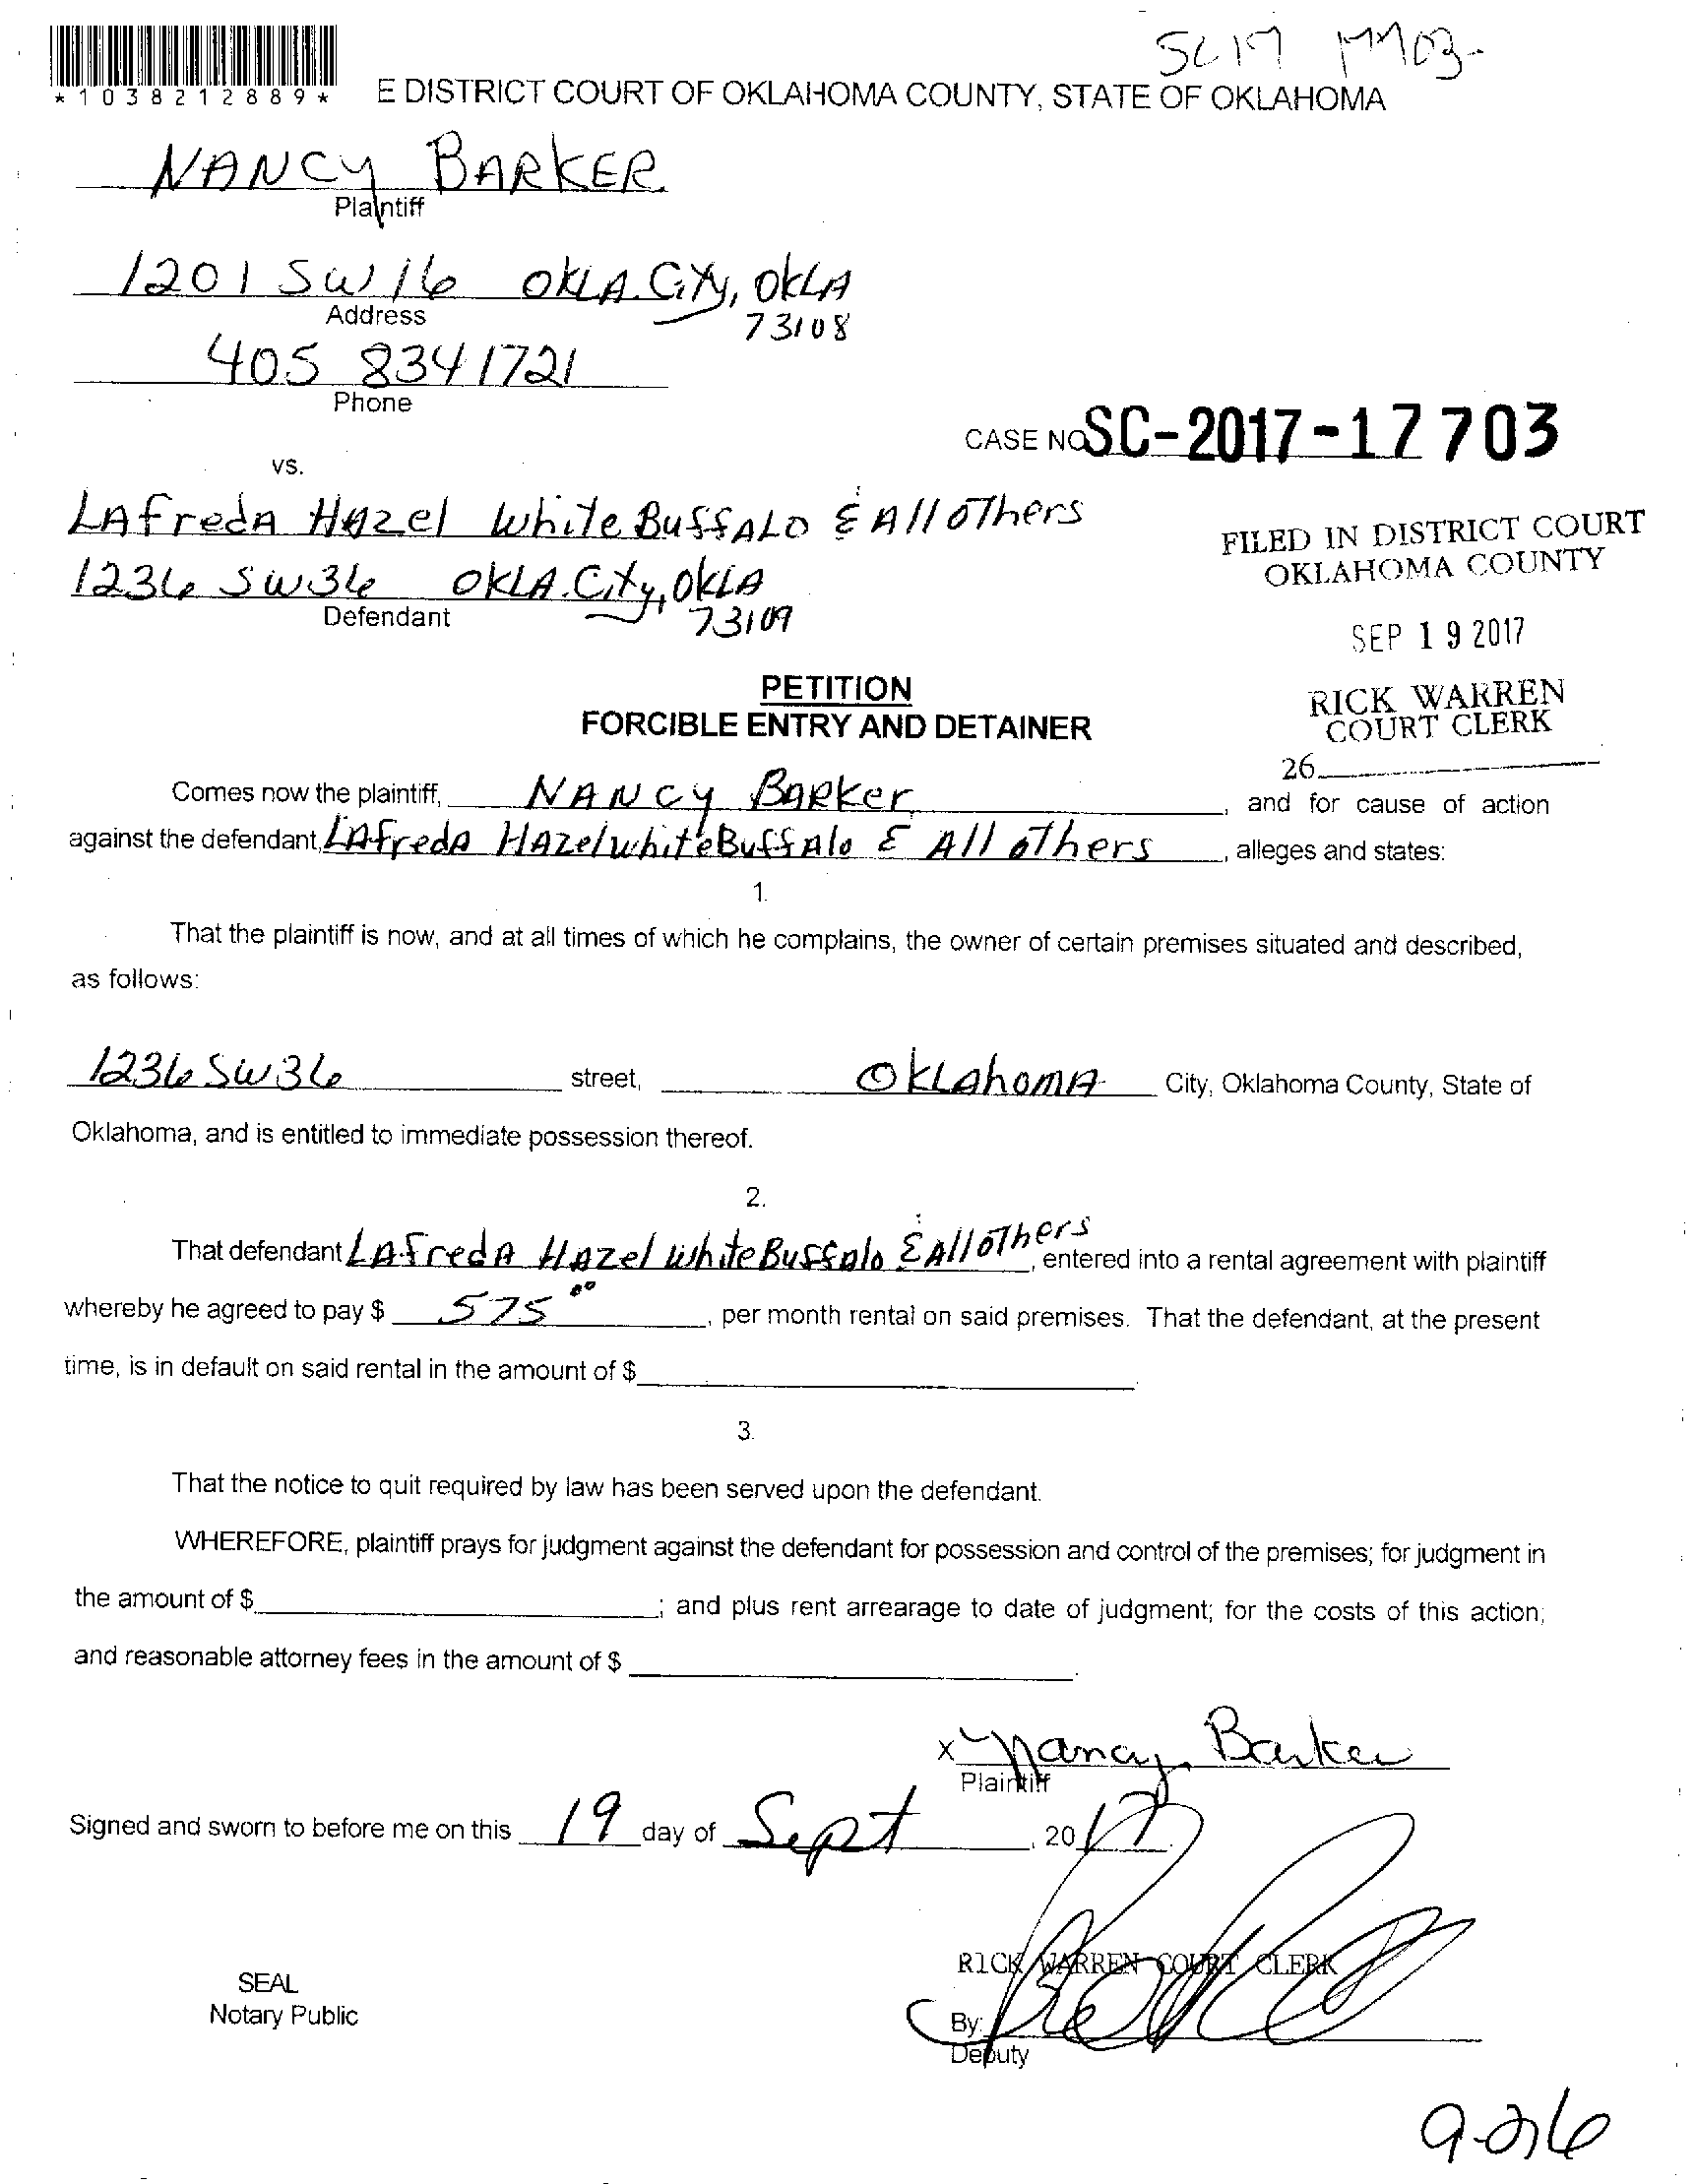 SC17 17703-
*1038212889*
E DISTRICT COURT OF OKLAHOMA COUNTY, STATE OF OKLAHOMA
NANCY BARKER
Plaintiff
1201 SW 16 OKLA. City, OKLA
Address
73108
405 834 1721
Phone
CASE NO SC-2017-17703
vs.
LAfredA Hazel White BuffALO & All oThers
FILED IN DISTRICT COURT
OKLAHOMA COUNTY
1236 SW36 OKLA. City, OKLA
Defendant
73109
SEP 19 2017
PETITION
FORCIBLE ENTRY AND DETAINER
RICK WARREN
COURT CLERK
26
Comes now the plaintiff, NANCY BARKer, and for cause of action
against the defendant, LAfredA HAzel white BuffAlo & All oThers, alleges and states:
1.
That the plaintiff is now, and at all times of which he complains, the owner of certain premises situated and described,
as follows:
1236 SW 36 street, OkLAhomA City, Oklahoma County, State of
Oklahoma, and is entitled to immediate possession thereof.
2.
That defendant LAfredA HAzel white BuffAlo & All oThers, entered into a rental agreement with plaintiff
whereby he agreed to pay $ 575 00, per month rental on said premises. That the defendant, at the present
time, is in default on said rental in the amount of $
3.
That the notice to quit required by law has been served upon the defendant.
WHEREFORE, plaintiff prays for judgment against the defendant for possession and control of the premises; for judgment in
the amount of $ ; and plus rent arrearage to date of judgment; for the costs of this action;
and reasonable attorney fees in the amount of $ .
x Nancy Barker
Plaintiff
Signed and sworn to before me on this 19 day of Sept, 2017.
RICK WARREN COURT CLERK
SEAL
Notary Public
By:
Deputy
9-26